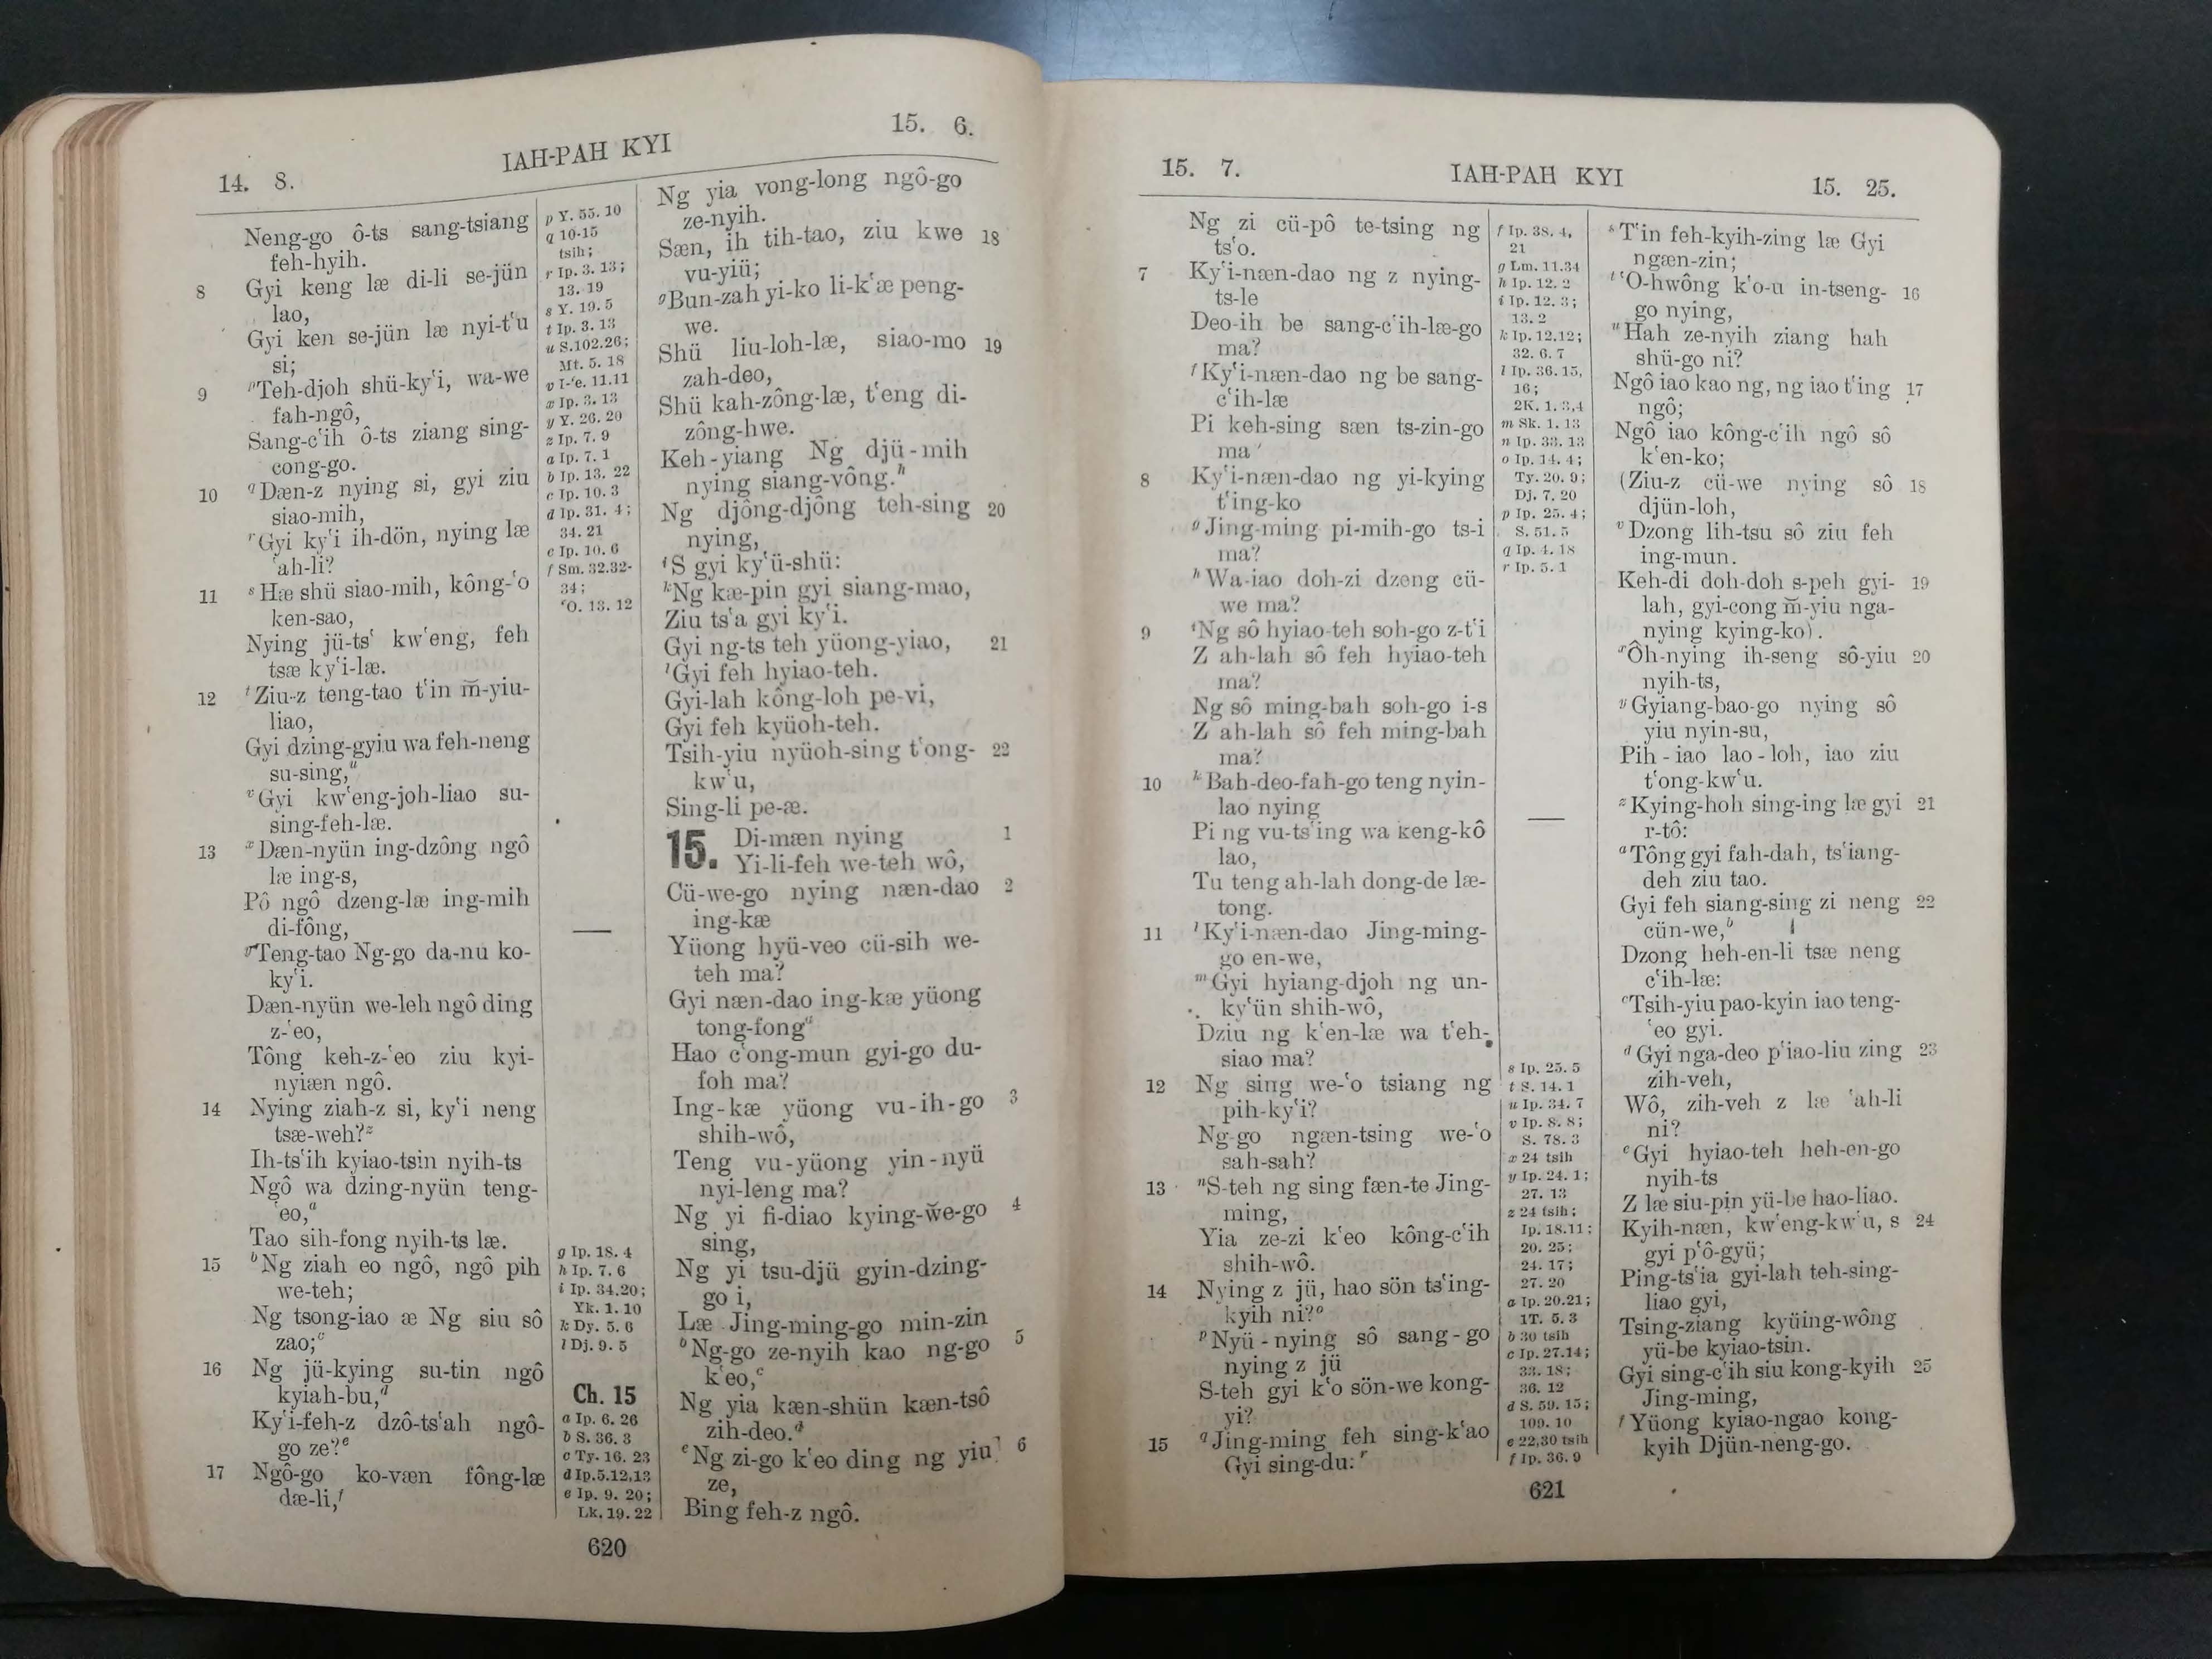 14. 8.
IAH-PAH KYI
15. 6.
Neng-go ô-ts sang-tsiang
feh-hyih.
8 Gyi keng læ di-li se-jün
lao,
Gyi ken se-jün læ nyi-t‘u
si;
9 pTeh-djoh shü-ky‘i, wa-we
fah-ngô,
Sang-c‘ih ô-ts ziang sing-
cong-go.
10 qDæn-z nying si, gyi ziu
siao-mih,
rGyi ky‘i ih-dön, nying læ
‘ah-li?
11 sHæ shü siao-mih, kông-‘o
ken-sao,
Nying jü-ts‘ kw‘eng, feh
tsæ ky‘i-læ.
12 tZiu-z teng-tao t‘in m̆-yiu-
liao,
Gyi dzing-gyiu wa feh-neng
su-sing,u
vGyi kw‘eng-joh-liao su-
sing-feh-læ.
13 xDæn-nyün ing-dzông ngô
læ ing-s,
Pô ngô dzeng-læ ing-mih
di-fông,
yTeng-tao Ng-go da-nu ko-
ky‘i.
Dæn-nyün we-leh ngô ding
z-‘eo,
Tông keh-z-‘eo ziu kyi-
nyiæn ngô.
14 Nying ziah-z si, ky‘i neng
tsæ-weh?z
Ih-ts‘ih kyiao-tsin nyih-ts
Ngô wa dzing-nyün teng-
‘eo,a
Tao sih-fong nyih-ts læ.
15 bNg ziah eo ngô, ngô pih
we-teh;
Ng tsong-iao æ Ng siu sô
zao;c
16 Ng jü-kying su-tin ngô
kyiah-bu,d
Ky‘i-feh-z dzô-ts‘ah ngô-
go ze?e
17 Ngô-go ko-væn fông-læ
dæ-li,f
p Y. 55. 10
q 10-15
tsih;
r Ip. 3. 13;
13. 19
s Y. 19. 5
t Ip. 3. 13
u S.102.26;
Mt. 5. 18
v I-‘e. 11.11
x Ip. 3. 13
y Y. 26. 20
z Ip. 7. 9
a Ip. 7. 1
b Ip. 13. 22
c Ip. 10. 3
d Ip. 31. 4;
34. 21
e Ip. 10. 6
f Sm. 32.32-
34;
‘O. 13. 12
g Ip. 18. 4
h Ip. 7. 6
i Ip. 34.20;
Yk. 1. 10
k Dy. 5. 6
l Dj. 9. 5
Ch. 15
a Ip. 6. 26
b S. 36. 3
c Ty. 16. 23
d Ip.5.12,13
e Ip. 9. 20;
Lk. 19. 22
Ng yia vong-long ngô-go
ze-nyih.
Sæn, ih tih-tao, ziu kwe 18
vu-yiü;
gBun-zah yi-ko li-k‘æ peng-
we.
Shü liu-loh-læ, siao-mo 19
zah-deo,
Shü kah-zông-læ, t‘eng di-
zông-hwe.
Keh-yiang Ng djü-mih
nying siang-vông.h
Ng djông-djông teh-sing 20
nying,
iS gyi ky‘ü-shü:
kNg kæ-pin gyi siang-mao,
Ziu ts‘a gyi ky‘i.
Gyi ng-ts teh yüong-yiao, 21
lGyi feh hyiao-teh.
Gyi-lah kông-loh pe-vi,
Gyi feh kyüoh-teh.
Tsih-yiu nyüoh-sing t‘ong- 22
kw‘u,
Sing-li pe-æ.
15. Di-mæn nying 1
Yi-li-feh we-teh wô,
Cü-we-go nying næn-dao 2
ing-kæ
Yüong hyü-veo cü-sih we-
teh ma?
Gyi næn-dao ing-kæ yüong
tong-fonga
Hao c‘ong-mun gyi-go du-
foh ma?
Ing-kæ yüong vu-ih-go 3
shih-wô,
Teng vu-yüong yin-nyü
nyi-leng ma?
Ng yi fi-diao kying-w̆e-go 4
sing,
Ng yi tsu-djü gyin-dzing-
go i,
Læ Jing-ming-go min-zin
bNg-go ze-nyih kao ng-go 5
k‘eo,c
Ng yia kæn-shün kæn-tsô
zih-deo.d
eNg zi-go k‘eo ding ng yiu 6
ze,
Bing feh-z ngô.
620
15. 7.
IAH-PAH KYI
15. 25.
Ng zi cü-pô te-tsing ng
ts‘o.
7 Ky‘i-næn-dao ng z nying-
ts-le
Deo-ih be sang-c‘ih-læ-go
ma?
fKy‘i-næn-dao ng be sang-
c‘ih-læ
Pi keh-sing sæn ts-zin-go
ma?
8 Ky‘i-næn-dao ng yi-kying
t‘ing-ko
gJing-ming pi-mih-go ts-i
ma?
hWa-iao doh-zi dzeng cü-
we ma?
9 iNg sô hyiao-teh soh-go z-t‘i
Z ah-lah sô feh hyiao-teh
ma?
Ng sô ming-bah soh-go i-s
Z ah-lah sô feh ming-bah
ma?
10 kBah-deo-fah-go teng nyin-
lao nying
Pi ng vu-ts‘ing wa keng-kô
lao,
Tu teng ah-lah dong-de læ-
tong.
11 lKy‘i-næn-dao Jing-ming-
go en-we,
mGyi hyiang-djoh ng un-
ky‘ün shih-wô,
Dziu ng k‘en-læ wa t‘eh-
siao ma?
12 Ng sing we-‘o tsiang ng
pih-ky‘i?
Ng-go ngæn-tsing we-‘o
sah-sah?
13 nS-teh ng sing fæn-te Jing-
ming,
Yia ze-zi k‘eo kông-c‘ih
shih-wô.
14 Nying z jü, hao sön ts‘ing-
kyih ni?o
pNyü-nying sô sang-go
nying z jü
S-teh gyi k‘o sön-we kong-
yi?
15 qJing-ming feh sing-k‘ao
Gyi sing-du:r
f Ip. 38. 4,
21
g Lm. 11.34
h Ip. 12. 2
i Ip. 12. 3;
13. 2
k Ip. 12.12;
32. 6. 7
l Ip. 36. 15,
16;
2K. 1. 3,4
m Sk. 1. 13
n Ip. 33. 13
o Ip. 14. 4;
Ty. 20. 9;
Dj. 7. 20
p Ip. 25. 4;
S. 51. 5
q Ip. 4. 18
r Ip. 5. 1
s Ip. 25. 5
t S. 14. 1
u Ip. 34. 7
v Ip. 8. 8;
S. 78. 3
x 24 tsih
y Ip. 24. 1;
27. 13
z 24 tsih;
Ip. 18.11;
20. 25;
24. 17;
27. 20
a Ip. 20.21;
1T. 5. 3
b 30 tsih
c Ip. 27.14;
33. 18;
36. 12
d S. 59. 15;
109. 10
e 22,30 tsih
f Ip. 36. 9
sT‘in feh-kyih-zing læ Gyi
ngæn-zin;
t‘O-hwông k‘o-u in-tseng- 16
go nying,
uHah ze-nyih ziang hah
shü-go ni?
Ngô iao kao ng, ng iao t‘ing 17
ngô;
Ngô iao kông-c‘ih ngô sô
k‘en-ko;
(Ziu-z cü-we nying sô 18
djün-loh,
vDzong lih-tsu sô ziu feh
ing-mun.
Keh-di doh-doh s-peh gyi- 19
lah, gyi-cong m̆-yiu nga-
nying kying-ko).
xÔh-nying ih-seng sô-yiu 20
nyih-ts,
yGyiang-bao-go nying sô
yiu nyin-su,
Pih-iao lao-loh, iao ziu
t‘ong-kw‘u.
zKying-hoh sing-ing læ gyi 21
r-tô:
aTông gyi fah-dah, ts‘iang-
deh ziu tao.
Gyi feh siang-sing zi neng 22
cün-we,b
Dzong heh-en-li tsæ neng
c‘ih-læ:
cTsih-yiu pao-kyin iao teng-
‘eo gyi.
dGyi nga-deo p‘iao-liu zing 23
zih-veh,
Wô, zih-veh z læ ‘ah-li
ni?
eGyi hyiao-teh heh-en-go
nyih-ts
Z læ siu-pin yü-be hao-liao.
Kyih-næn, kw‘eng-kw‘u, s 24
gyi p‘ô-gyü;
Ping-ts‘ia gyi-lah teh-sing-
liao gyi,
Tsing-ziang kyüing-wông
yü-be kyiao-tsin.
Gyi sing-c‘ih siu kong-kyih 25
Jing-ming,
fYüong kyiao-ngao kong-
kyih Djün-neng-go.
621